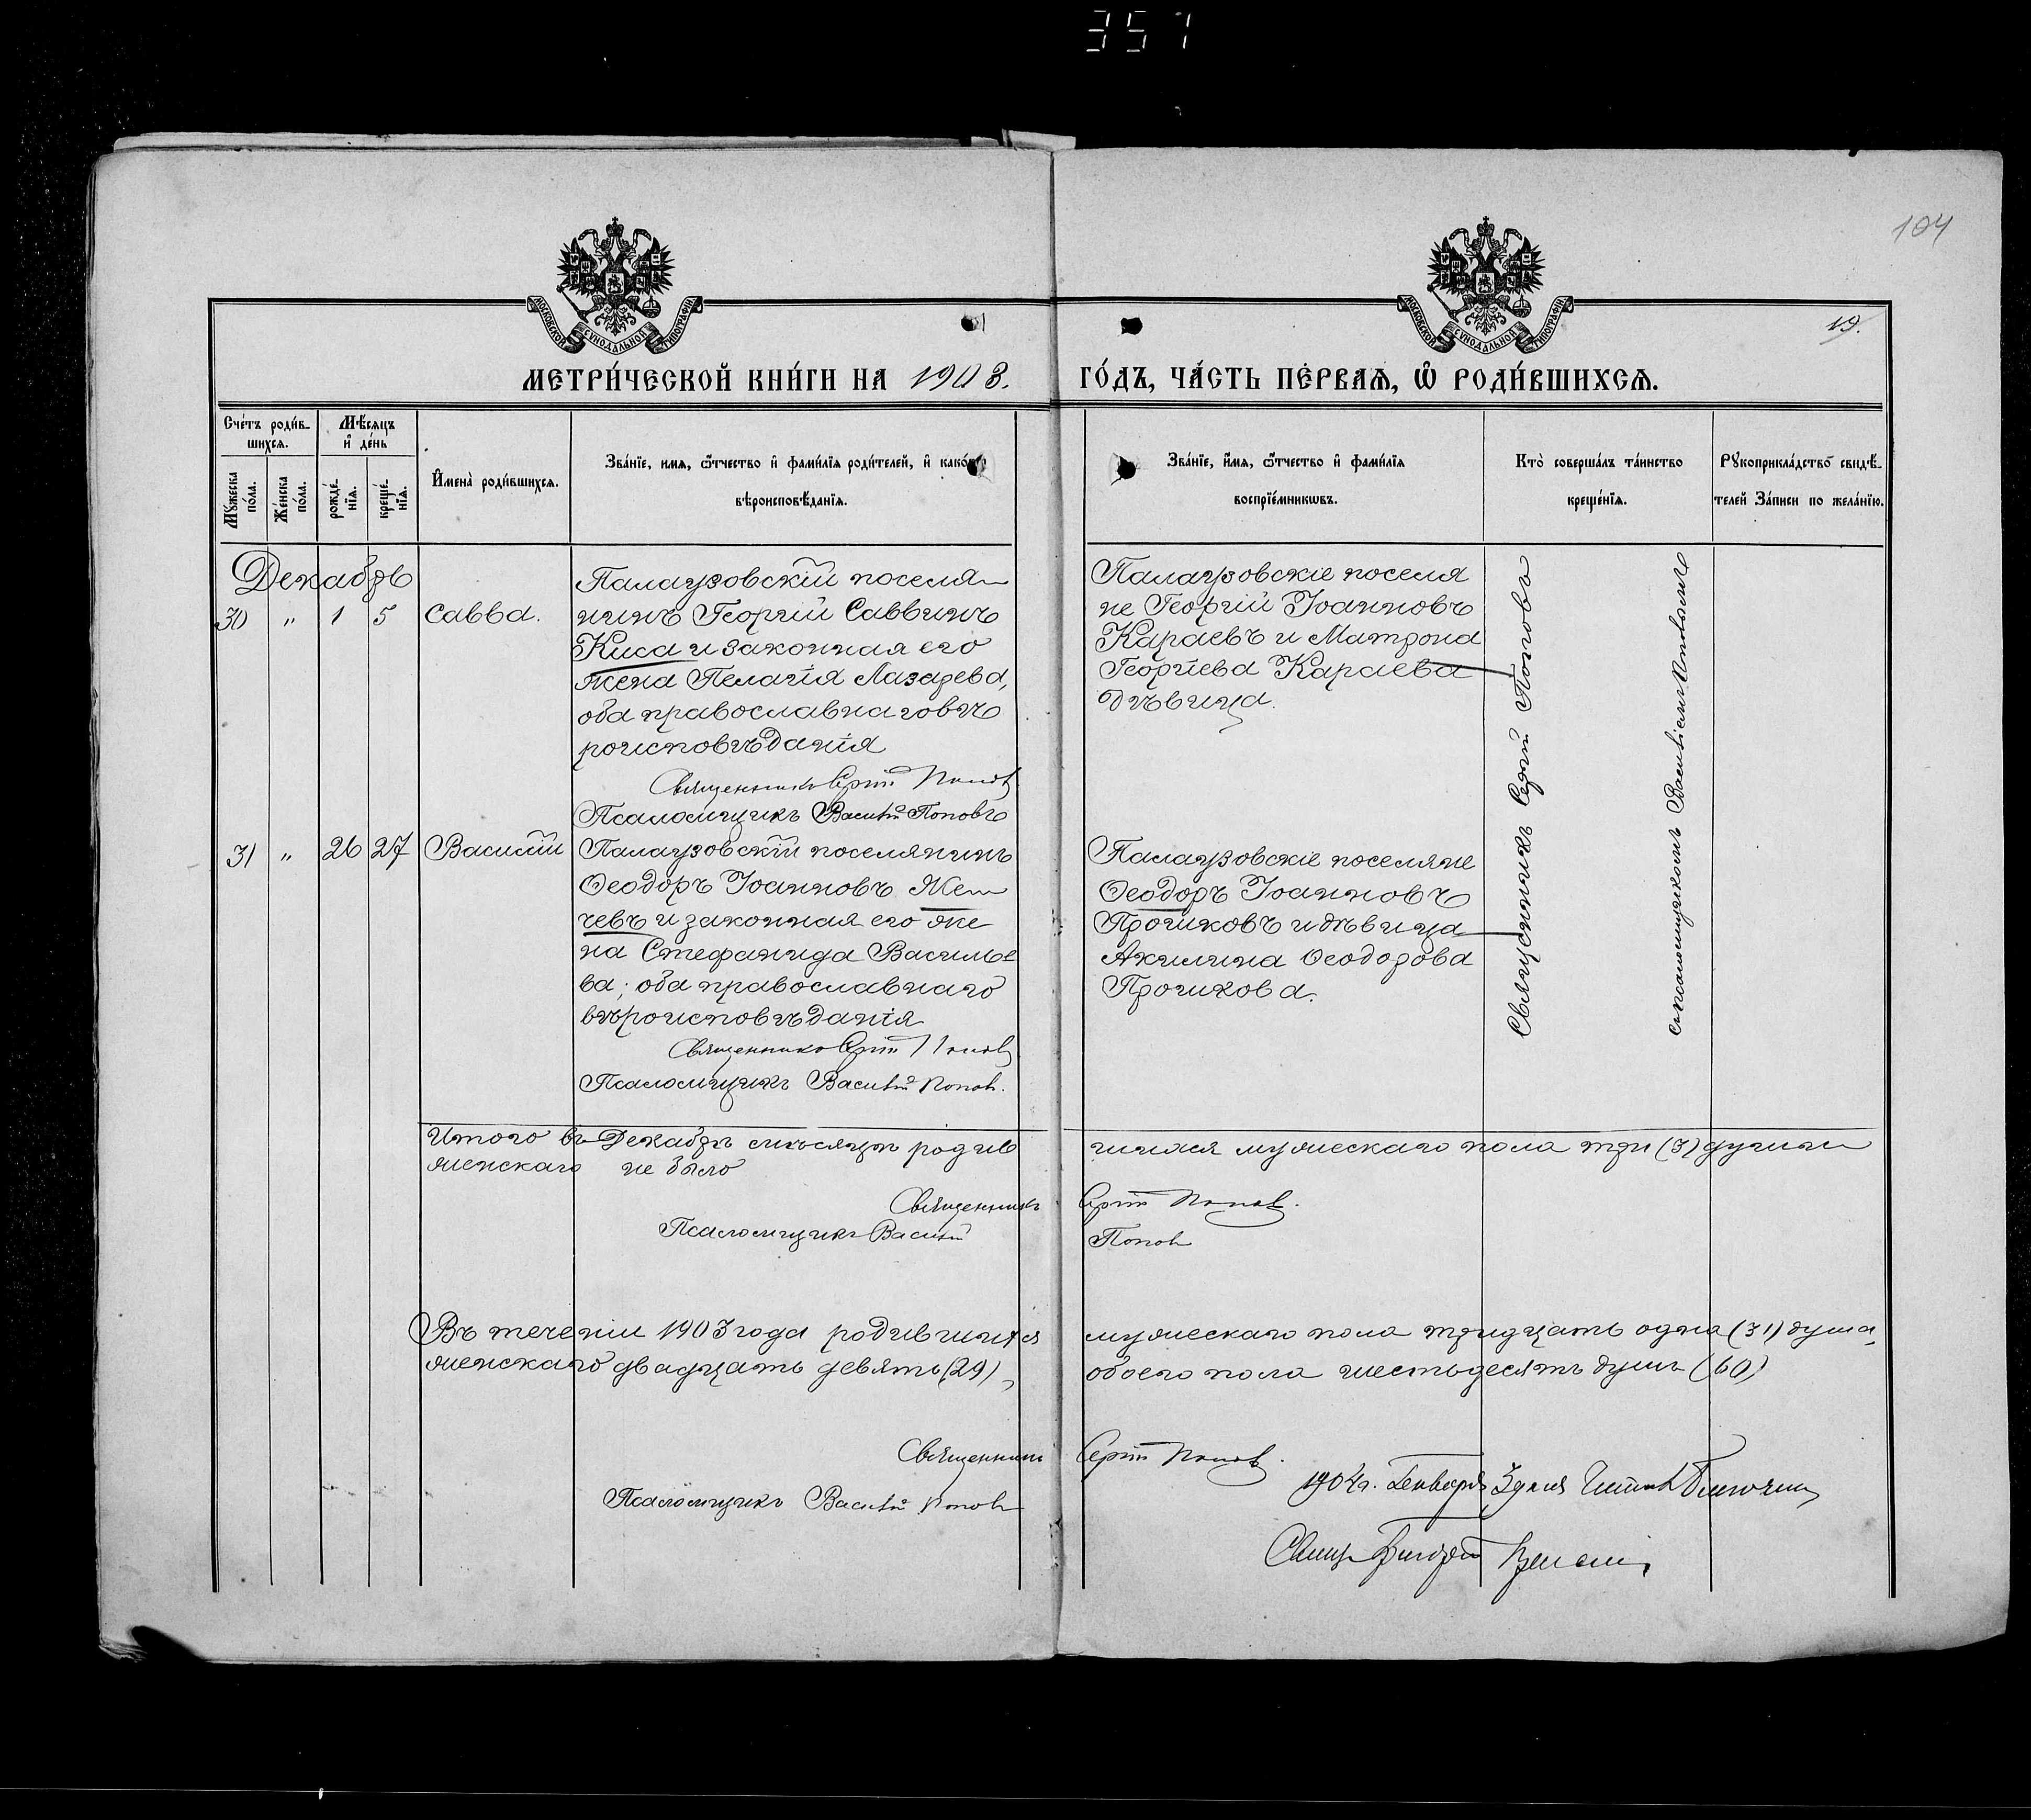 357
104
МОСКОВСКОЙ СѴНОДАЛЬНОЙ ТИПОГРАФІИ
МОСКОВСКОЙ СѴНОДАЛЬНОЙ ТИПОГРАФІИ
19.
МЕТРИ́ЧЕСКОЙ КНИ́ГИ НА 1903.
ГО́ДЪ, ЧА́СТЬ ПЕ́РВАѦ, Ѽ РОДИ́ВШИХСѦ.
Сче́тъ роди́в-
шихсѧ.
Мѣ́сѧцъ
и҆ де́нь
Мꙋ́жеска
по́ла.
Же́нска
по́ла.
рожде́-
нїѧ.
креще́-
нїѧ.
И҆мена̀ роди́вшихсѧ.
Зва́нїе, имѧ, ѻ҆́тчество и҆ фамилїѧ роди́телей, и҆ како́гѡ
вѣроисповѣ́данїѧ.
Зва́нїе, и҆́мѧ, ѻ҆́тчество и҆ фами́лїѧ
воспрїе́мникѡвъ.
Кто̀ соверша́лъ та́инство
креще́нїѧ.
Рꙋкоприкла́дство свидѣ́-
телей За́писи по жела́нїю.
Декабрь
30 " 1 5 Савва.
Палаузовскій поселя-
нинъ Георгій Саввинъ
Киса и законная его
жена Пелагія Лазарева,
оба православнаго вѣ
роисповѣданія
Священникъ Сергій Поповъ
Псаломщикъ Василій Поповъ
Палаузовскіе поселя
не Георгій Іоанновъ
Караевъ и Матрона
Георгіева Караева
дѣвица.
31 " 26 27 Василій
Палаузовскій поселянинъ
Ѳеодоръ Іоанновъ Жел
чевъ и законная его же
на Стефанида Василье
ва; оба православнаго
вѣроисповѣданія
Священникъ Сергій Поповъ
Псаломщикъ Василій Поповъ.
Палаузовскіе поселяне
Ѳеодоръ Іоанновъ
Прочиковъ и дѣвица
Акилина Ѳеодорова
Прочикова.
Священникъ Сергій Поповъ
съ псаломщикомъ Василіемъ Поповымъ
Итого въ Декабрѣ мѣсяцѣ родив шихся мужескаго пола три (3) души
женскаго не было
Священникъ Сергій Поповъ.
Псаломщикъ Василій Поповъ
Въ теченіи 1903 года родившихся мужескаго пола тридцать одна (31) душа,
женскаго двадцать девять (29), обоего пола шестьдесятъ душъ (60)
Священникъ Сергій Поповъ.
Псаломщикъ Василій Поповъ
1904 г. Генваря 3 дня